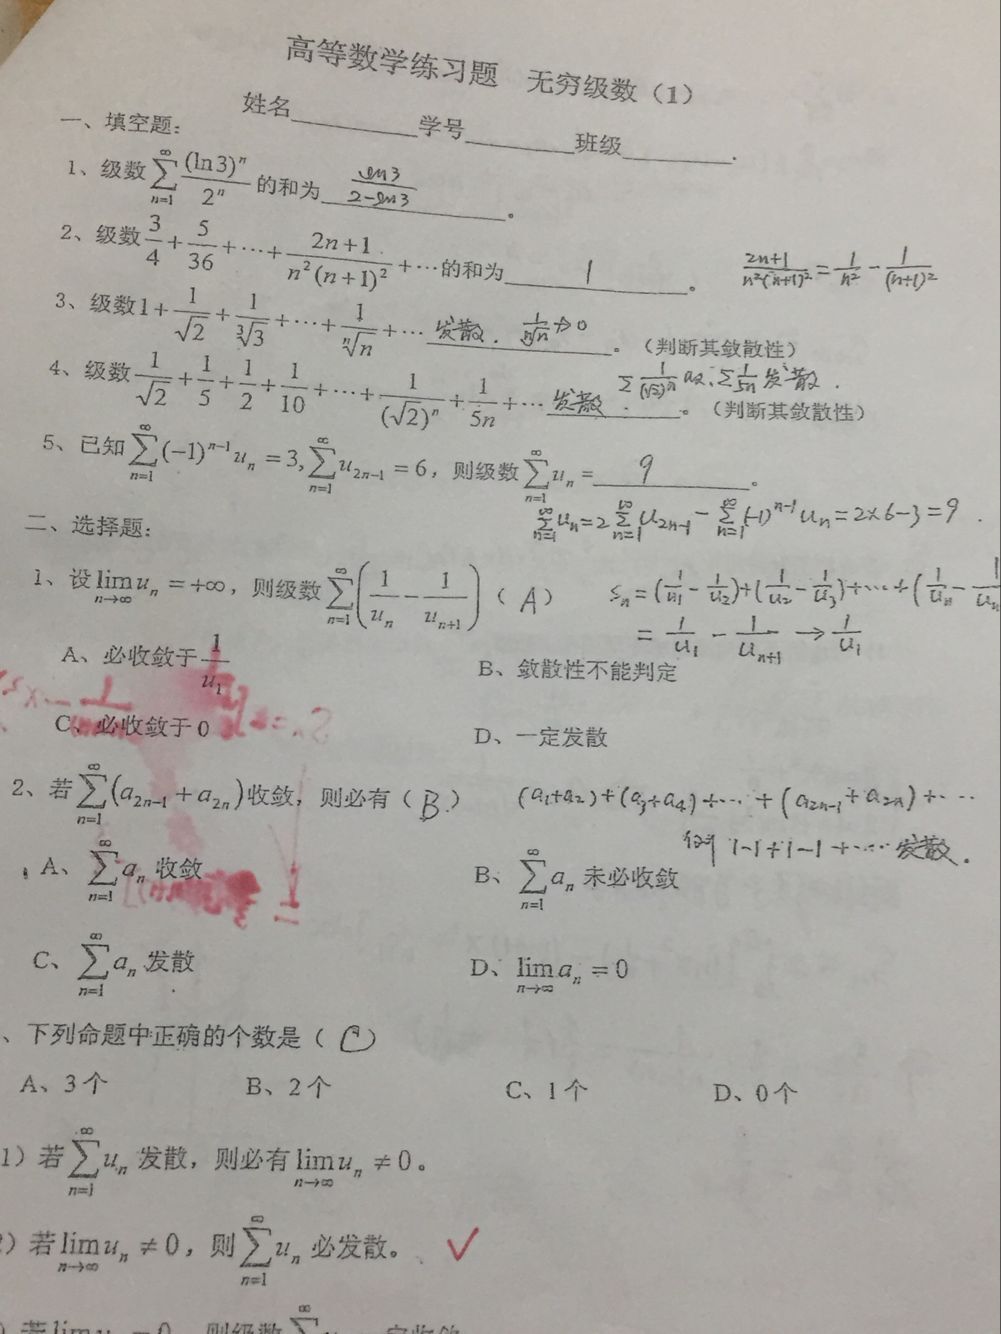 高等数学练习题 无穷级数（1）
姓名________学号________班级________.
一、填空题：
1、级数 $\sum_{n=1}^{\infty}\frac{(\ln 3)^n}{2^n}$ 的和为 $\frac{\ln 3}{2-\ln 3}$ 。
2、级数 $\frac{3}{4}+\frac{5}{36}+\cdots+\frac{2n+1}{n^2(n+1)^2}+\cdots$ 的和为 1 。 $\frac{2n+1}{n^2(n+1)^2}=\frac{1}{n^2}-\frac{1}{(n+1)^2}$
3、级数 $1+\frac{1}{\sqrt{2}}+\frac{1}{\sqrt[3]{3}}+\cdots+\frac{1}{\sqrt[n]{n}}+\cdots$ 发散. $\frac{1}{\sqrt[n]{n}}\nrightarrow 0$ 。（判断其敛散性）
4、级数 $\frac{1}{\sqrt{2}}+\frac{1}{5}+\frac{1}{2}+\frac{1}{10}+\cdots+\frac{1}{(\sqrt{2})^n}+\frac{1}{5n}+\cdots$ 发散. 。（判断其敛散性）
$\sum\frac{1}{(\sqrt{2})^n}$ 收. $\sum\frac{1}{5n}$ 发散.
5、已知 $\sum_{n=1}^{\infty}(-1)^{n-1}u_n=3,\sum_{n=1}^{\infty}u_{2n-1}=6$，则级数 $\sum_{n=1}^{\infty}u_n=$ 9 。
$\sum_{n=1}^{\infty}u_n=2\sum_{n=1}^{\infty}u_{2n-1}-\sum_{n=1}^{\infty}(-1)^{n-1}u_n=2\times 6-3=9.$
二、选择题：
1、设 $\lim_{n\to\infty}u_n=+\infty$，则级数 $\sum_{n=1}^{\infty}\left(\frac{1}{u_n}-\frac{1}{u_{n+1}}\right)$（ A ）
$s_n=(\frac{1}{u_1}-\frac{1}{u_2})+(\frac{1}{u_2}-\frac{1}{u_3})+\cdots+(\frac{1}{u_n}-\frac{1}{u_n}$
$=\frac{1}{u_1}-\frac{1}{u_{n+1}}\to\frac{1}{u_1}$
A、必收敛于 $\frac{1}{u_1}$ B、敛散性不能判定
C、必收敛于 0 D、一定发散
2、若 $\sum_{n=1}^{\infty}(a_{2n-1}+a_{2n})$ 收敛，则必有（ B. ） $(a_1+a_2)+(a_3+a_4)+\cdots+(a_{2n-1}+a_{2n})+\cdots$
例 $1-1+1-1+\cdots$ 发散.
A、$\sum_{n=1}^{\infty}a_n$ 收敛 B、$\sum_{n=1}^{\infty}a_n$ 未必收敛
C、$\sum_{n=1}^{\infty}a_n$ 发散 D、$\lim_{n\to\infty}a_n=0$
、下列命题中正确的个数是（ C ）
A、3 个 B、2 个 C、1 个 D、0 个
1）若 $\sum_{n=1}^{\infty}u_n$ 发散，则必有 $\lim_{n\to\infty}u_n\neq 0$。
2）若 $\lim_{n\to\infty}u_n\neq 0$，则 $\sum_{n=1}^{\infty}u_n$ 必发散。 ✓